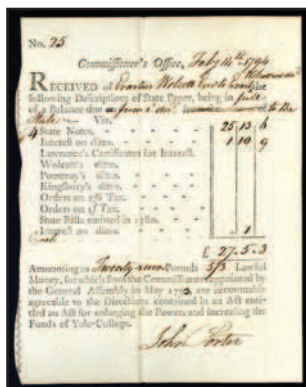 No. 25
Commissioner's Office, Feby 14th 1794
RECEIVED of Erastus Wolcott the
following Descriptions of State Paper, being in full
of a Balance due to the
State Viz.
4 State Notes, 25 13 6
Interest on ditto. 1 10 9
Lawrence's Certificates for Interest.
Wolcott's ditto.
Pomeroy's ditto.
Kingsbury's ditto.
Orders on Tax.
Orders on 1/ Tax.
State Bills emitted in 1780.
Interest on ditto. 1
£ 27.5.3
Amounting to Twenty seven Pounds 5/3 Lawful
Money, for which from the Commissioner appointed by
the General Assembly in May 1793, are accountable
agreeable to the Directions contained in an Act enti-
tled an Act for enlarging the Powers and increasing the
Funds of Yale-College.
John Porter